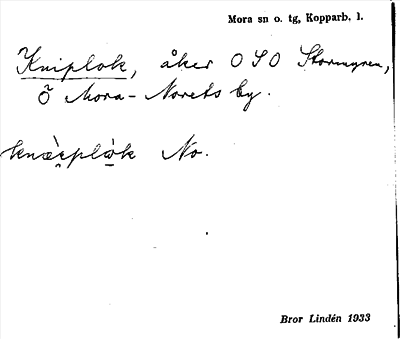 Mora sn o. tg, Kopparb. l.
Kniplok, åker OSO Stormyren,
Ö Mora-Norets by.
No.
Bror Lindén 1933